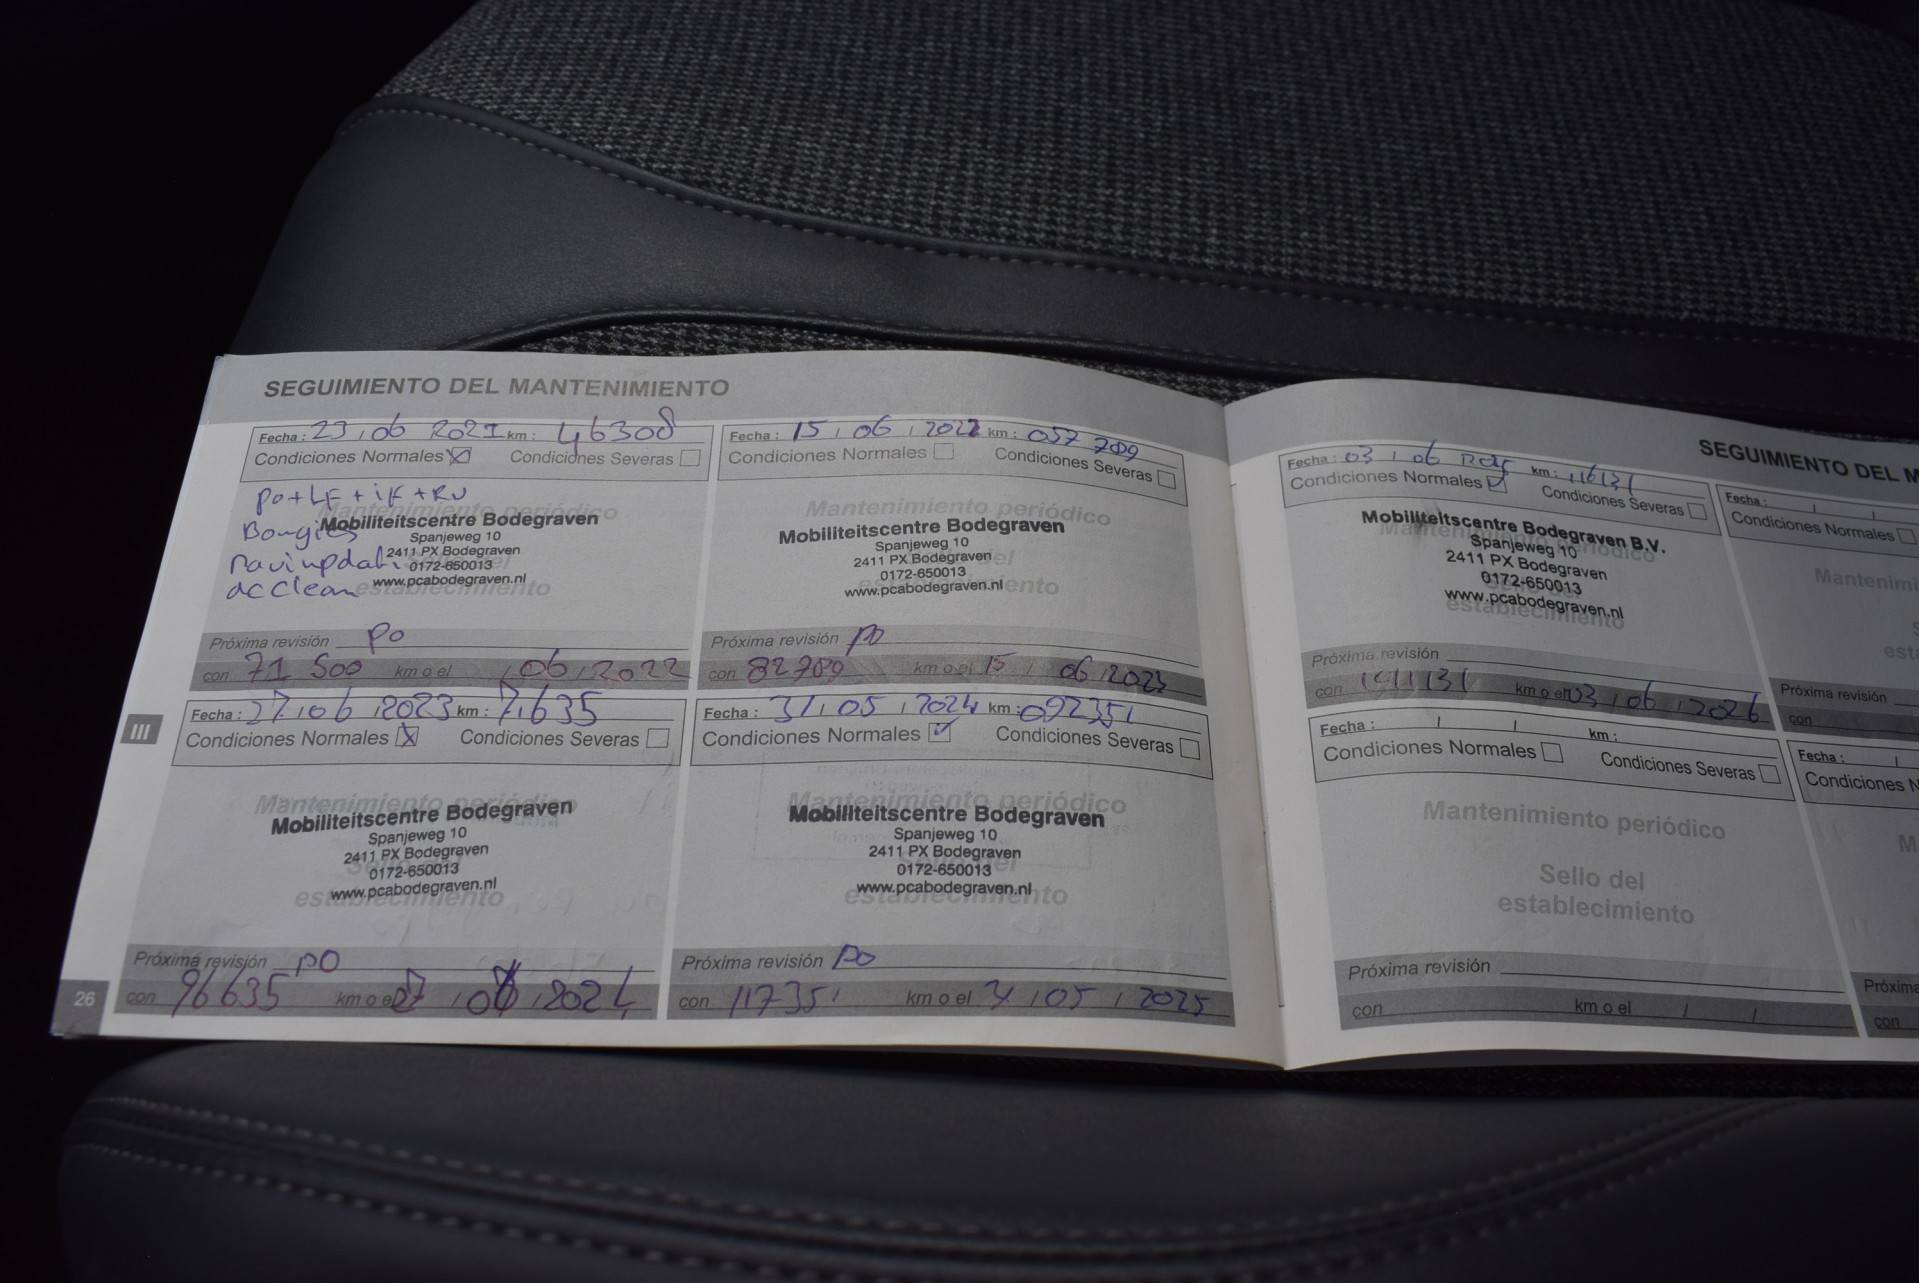 SEGUIMIENTO DEL MANTENIMIENTO
Fecha : 23 / 06 2021 km : 46308
Condiciones Normales Condiciones Severas
po + LF + iF + RV
Mantenimiento periódico
Mobiliteitscentre Bodegraven
Bougies
Spanjeweg 10
2411 PX Bodegraven
0172-650013
www.pcabodegraven.nl
ac clean
establecimiento
Próxima revisión po
con 71 500 km o el / 06 / 2022
Fecha : 15 / 06 / 2022 km : 057 789
Condiciones Normales Condiciones Severas
Mantenimiento periódico
Mobiliteitscentre Bodegraven
Spanjeweg 10
2411 PX Bodegraven
0172-650013
www.pcabodegraven.nl
Próxima revisión po
con 82789 km o el 15 / 06 / 2023
III
Fecha : 27 / 06 / 2023 km : 71635
Condiciones Normales Condiciones Severas
Mantenimiento periódico
Mobiliteitscentre Bodegraven
Spanjeweg 10
2411 PX Bodegraven
0172-650013
www.pcabodegraven.nl
establecimiento
Próxima revisión po
con 96635 km o el 27 / 06 / 2024
Fecha : 31 / 05 / 2024 km : 092351
Condiciones Normales Condiciones Severas
Mantenimiento periódico
Mobiliteitscentre Bodegraven
Spanjeweg 10
2411 PX Bodegraven
0172-650013
www.pcabodegraven.nl
establecimiento
Próxima revisión po
con 117351 km o el 31 / 05 / 2025
26
SEGUIMIENTO DEL M
Fecha : 03 / 06 / 2025 km : 116131
Condiciones Normales Condiciones Severas
Mobiliteitscentre Bodegraven B.V.
Mantenimiento periódico
Spanjeweg 10
2411 PX Bodegraven
0172-650013
www.pcabodegraven.nl
establecimiento
Próxima revisión
con 141131 km o el 03 / 06 / 2026
Fecha : / /
Condiciones Normales
Mantenimi
est
Próxima revisión
con
Fecha : / / km :
Condiciones Normales Condiciones Severas
Mantenimiento periódico
Sello del
establecimiento
Próxima revisión
con km o el / /
Fecha : /
Condiciones N
M
Próxima
con